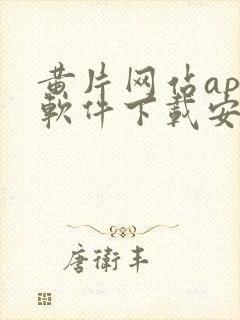 黄片网佔ap
軟件下載安
唐衛丰